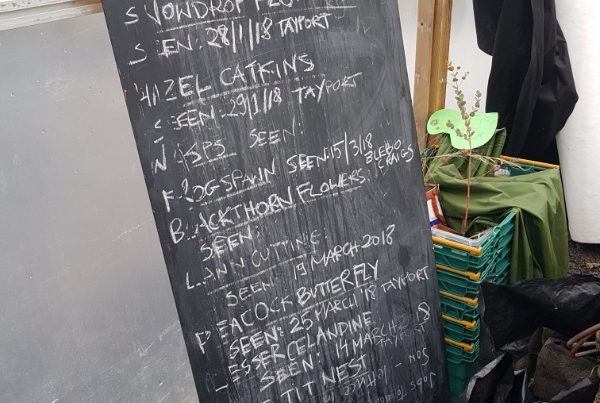 SNOWDROP FLOWERS
SEEN: 28/1/18 TAYPORT
HAZEL CATKINS
SEEN: 29/1/18 TAYPORT
WASPS SEEN:
FROGSPAWN SEEN: 15/3/18 BLEBO CRAIGS
BLACKTHORN FLOWERS:
SEEN:
LAWN CUTTING
SEEN: 19 MARCH 2018
PEACOCK BUTTERFLY
SEEN: 25 MARCH '18 TAYPORT
LESSER CELANDINE
SEEN: 14 MARCH 2018
TAYPORT
TIT NEST